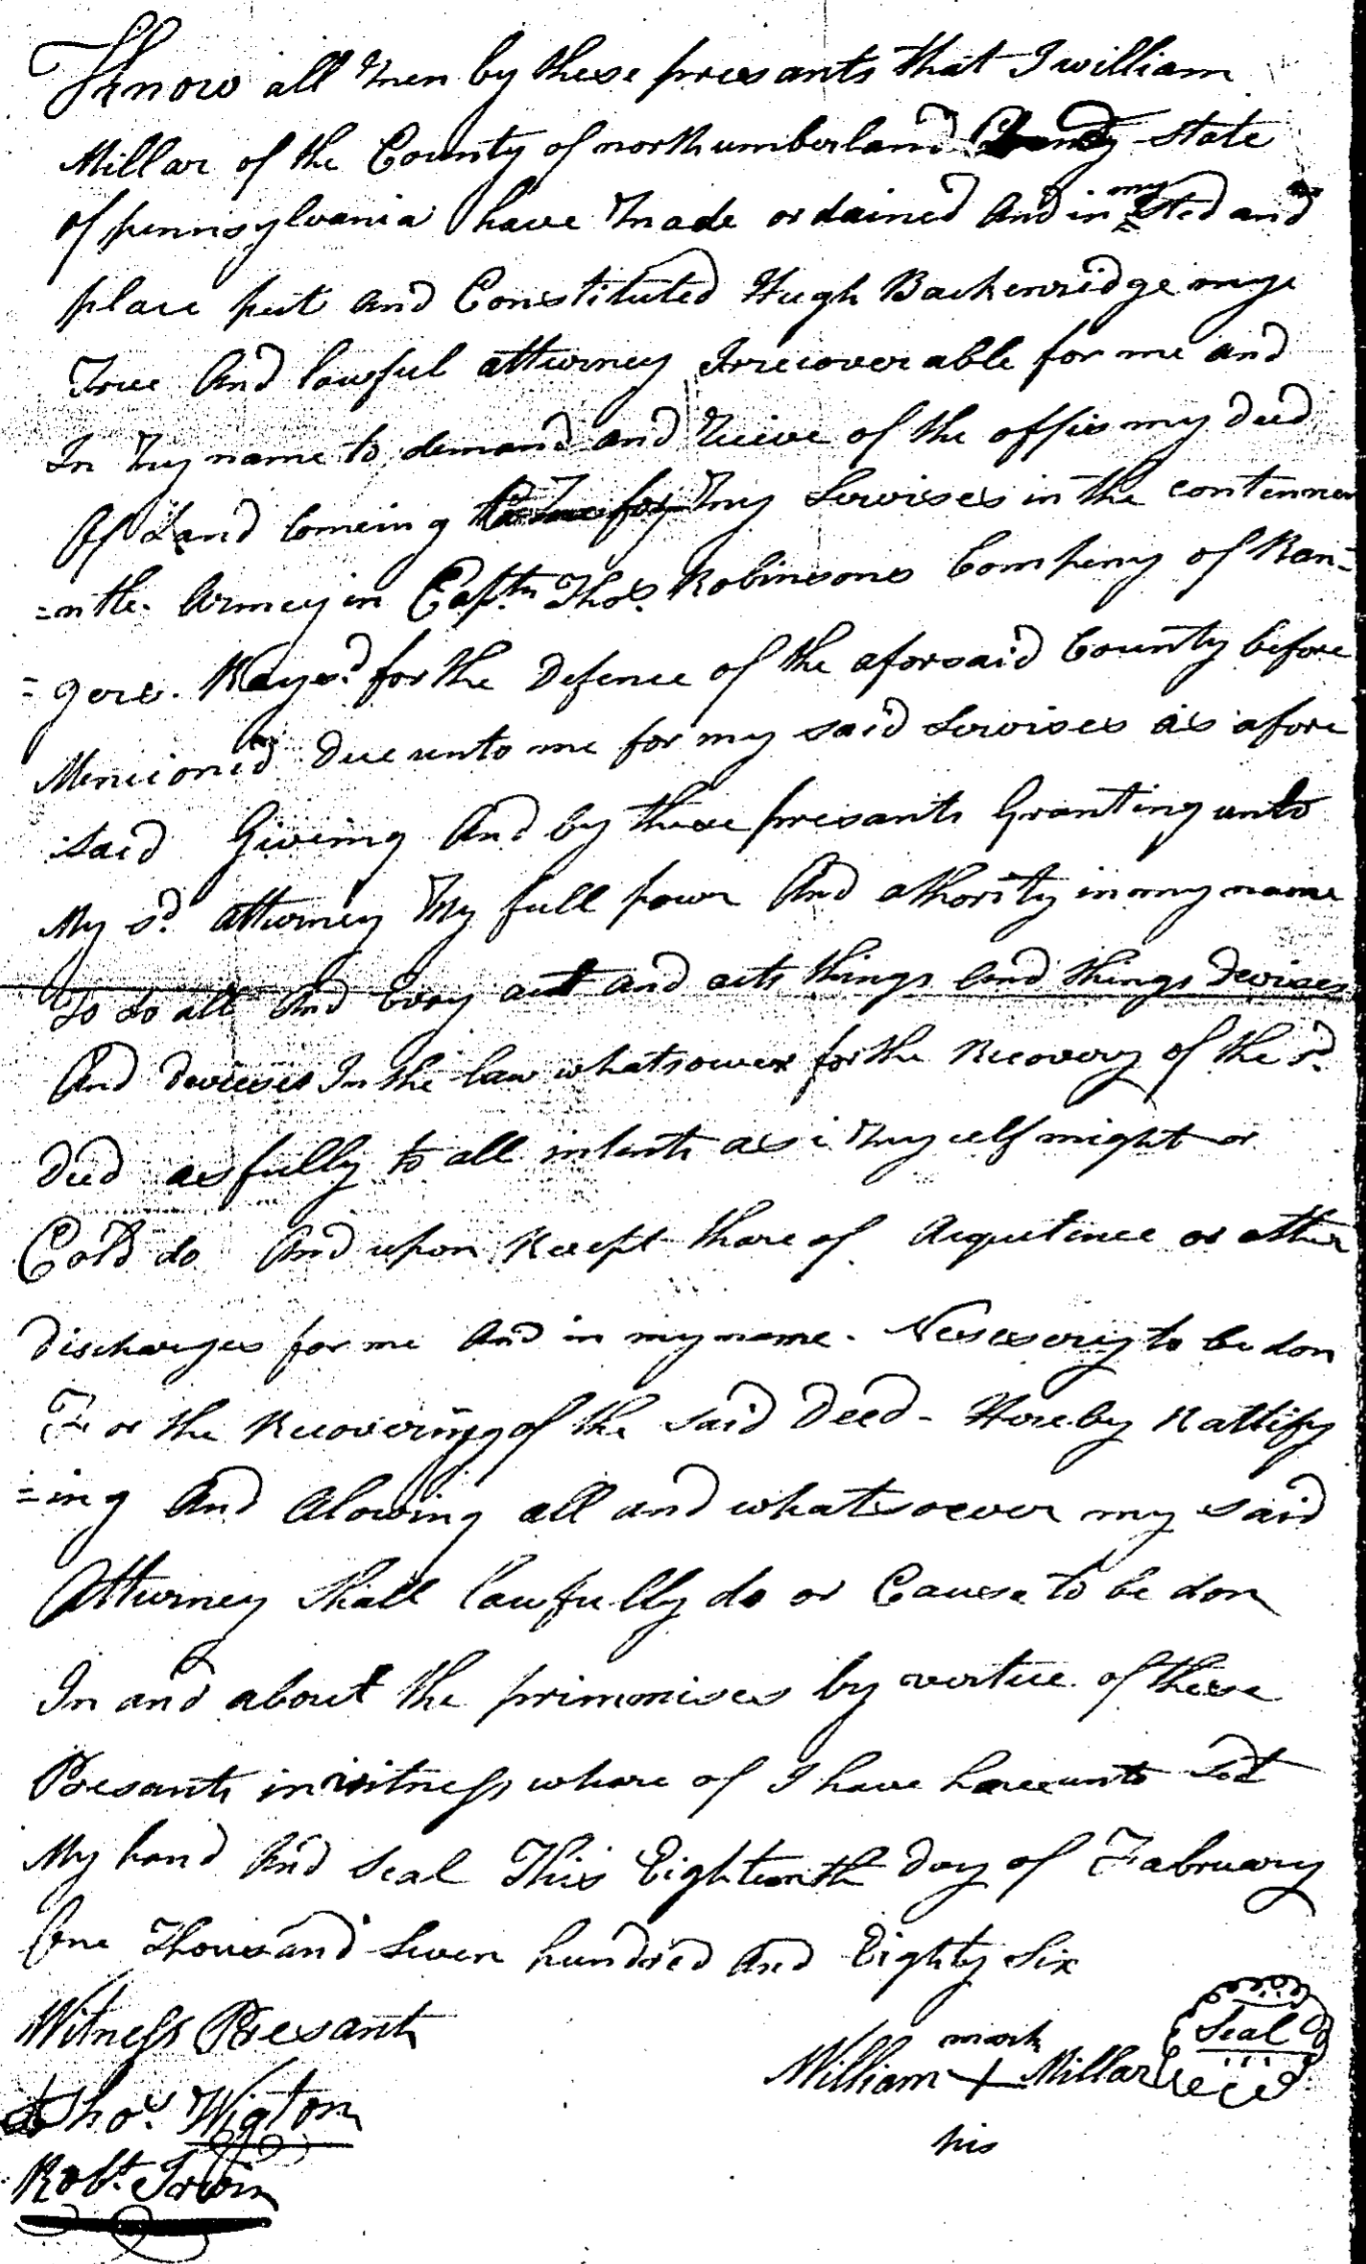 Know all men by these presants that I william
Millar of the County of northumberland County State
of pennsylvania have made ordained And in my Sted and
place put and Constituted Hugh Backenridge mye
True And lawful atturney Irrecoverable for me and
In my name to demand and Recive of the offis my deed
Of Land Comeing for my Servises in the contennen
=ntle. Armey in Captn Thos. Robinsons Compeny of Ran=
=gers. Raysd. for the Defence of the aforsaid County before
Mencioned Due unto me for my said Servises as afore
said Giveing And by these presants Granting unto
My sd. atturney My full powr And athority in my name
to do all And Every act and acts things and things devises
And devieses In the law whatsower for the Recovery of the sd.
deed as fully to all intents as i my self might or
Cold do And upon Recept thare of Acquitence or other
discharges for me And in my name. Nessesery to be don
For the Recovering of the said Deed - Hereby Rattify
=ing And Alowing all and whatsoever my said
Atturney Shall lawfully do or Cause to be don
In and about the primmises by vertue of these
Presants in witness whare of I have hereunto Set
My hand And Seal This Eighteenth day of February
One Thousand Seven hundred And Eighty Six
Witness Presant
mark
William + Millar Seal
his
Thos. Wigton
Robt. Irwin